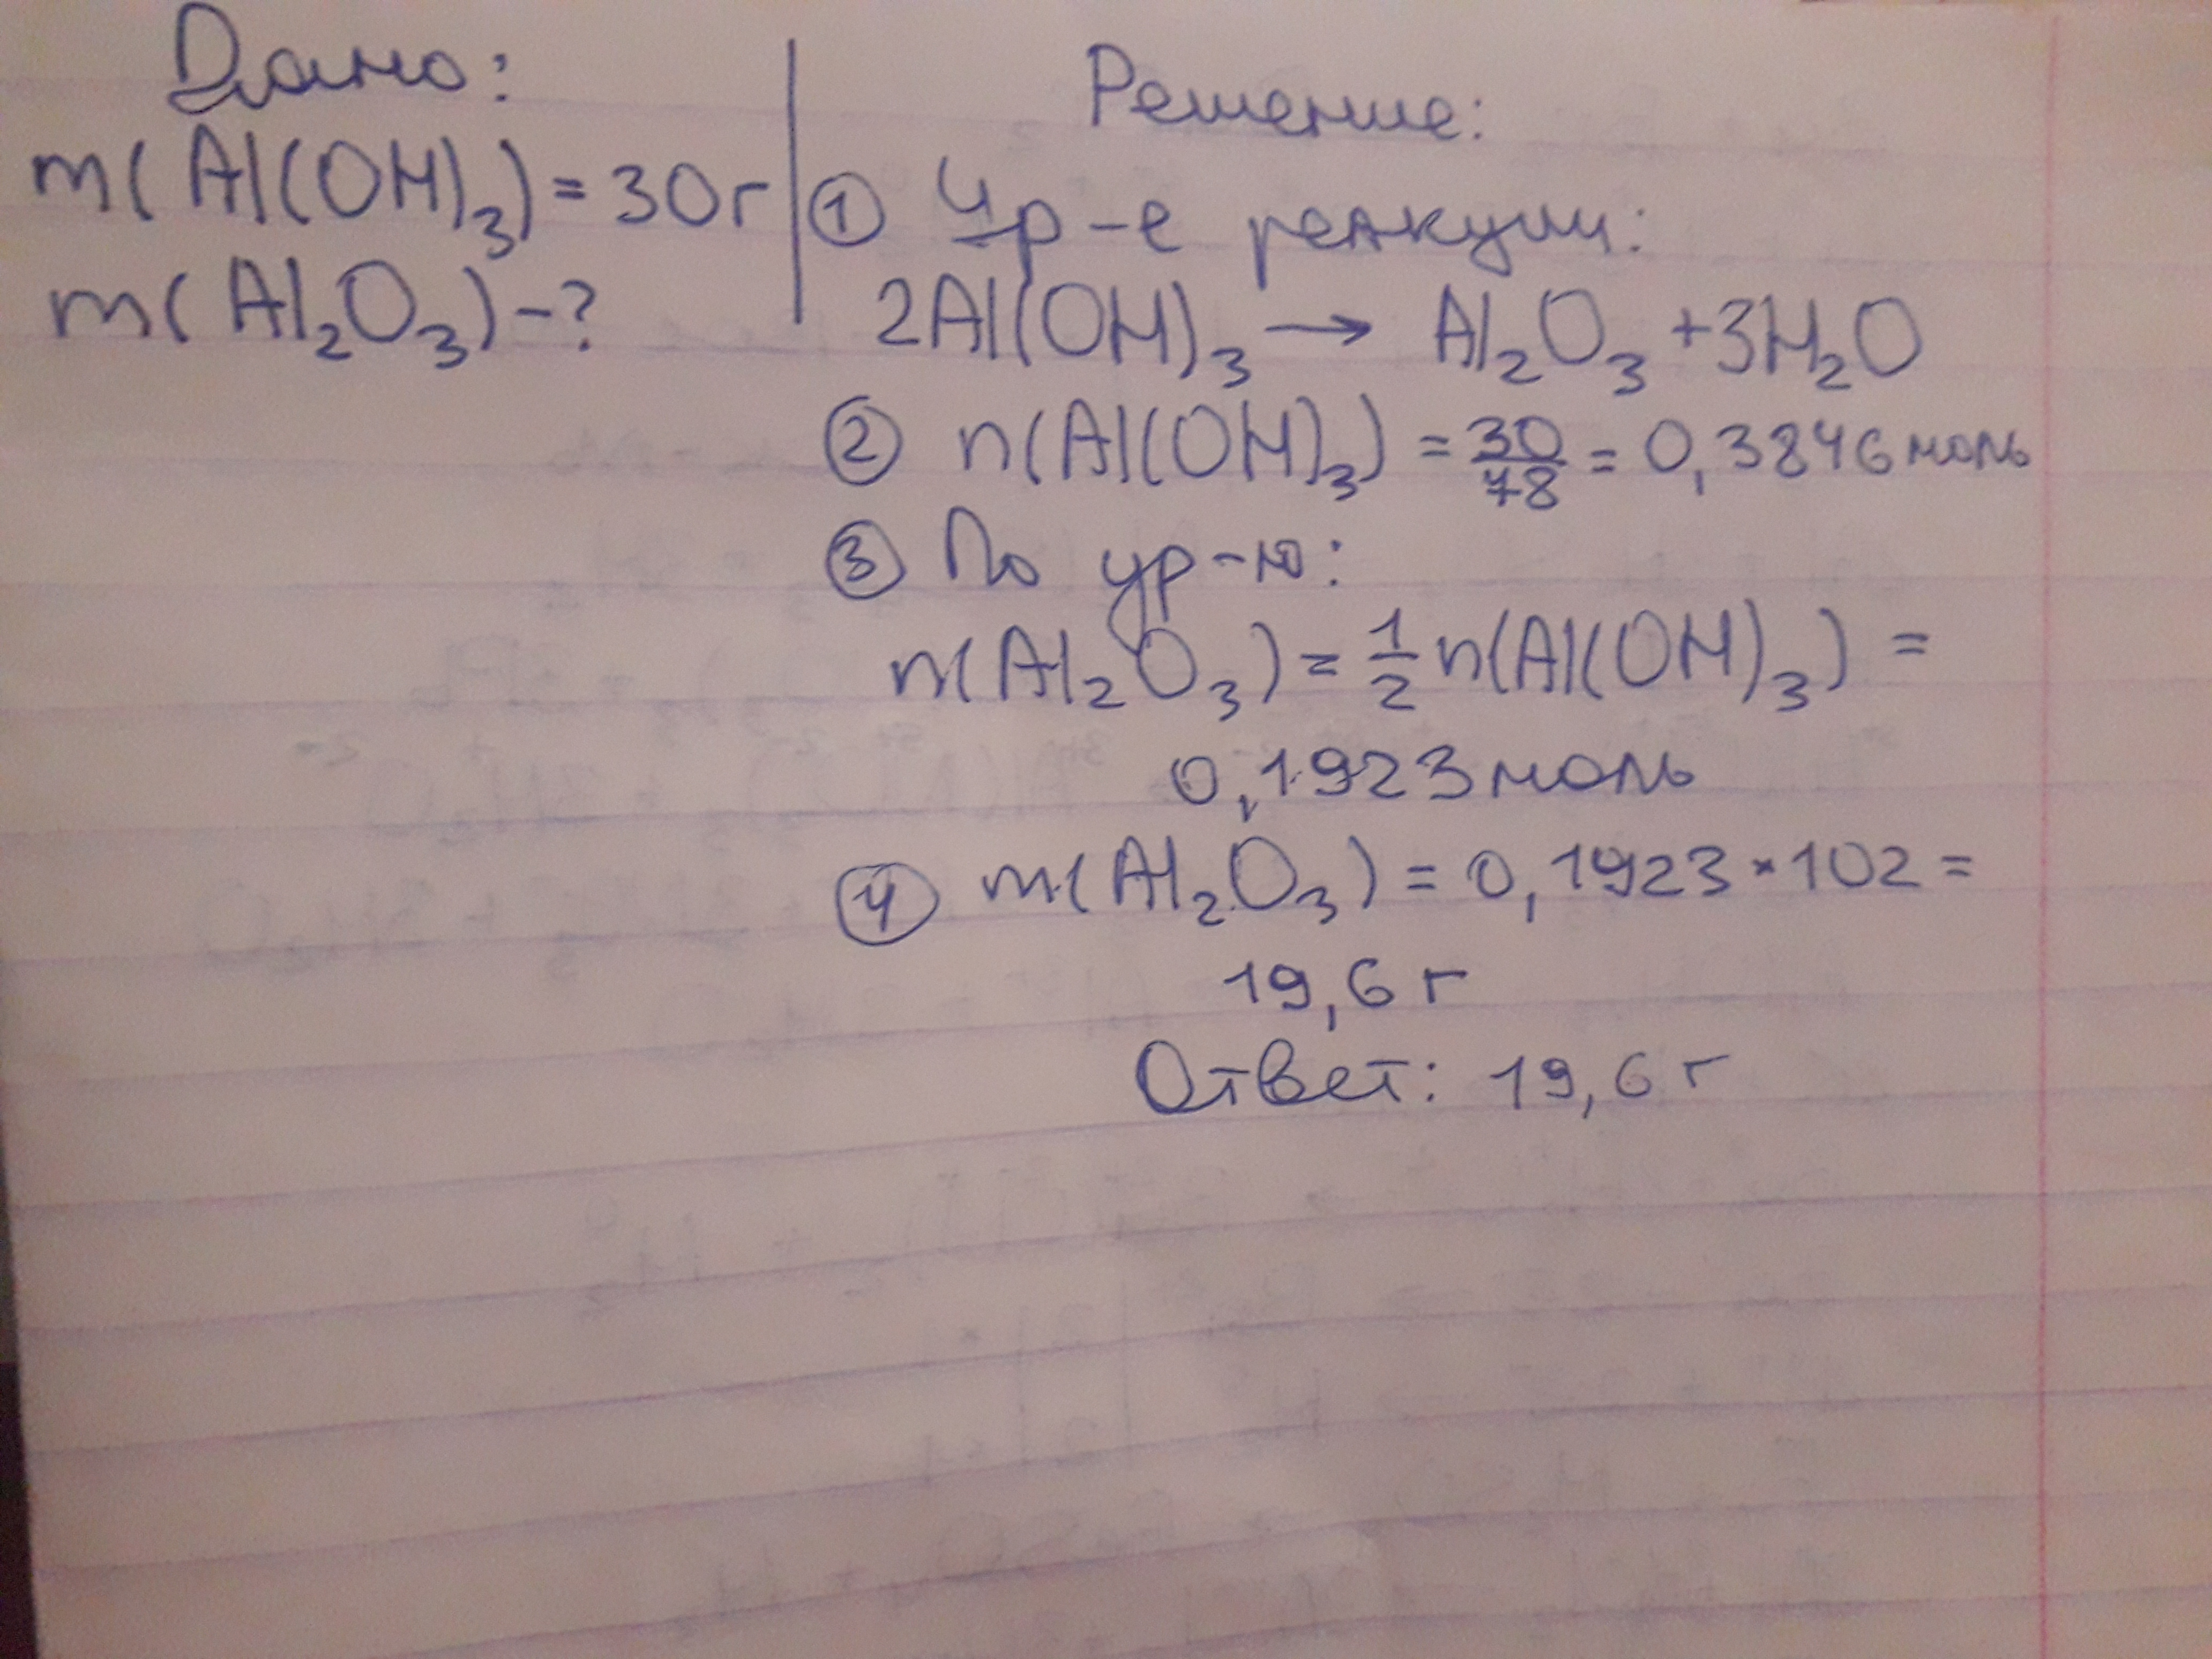 Дано:
m(Al(OH)₃) = 30г
m(Al₂O₃) - ?
Решение:
① Ур-е реакции:
2Al(OH)₃ → Al₂O₃ + 3H₂O
② n(Al(OH)₃) = 30/78 = 0,3846 моль
③ По ур-ю:
n(Al₂O₃) = 1/2 n(Al(OH)₃) =
0,1923 моль
④ m(Al₂O₃) = 0,1923 * 102 =
19,6 г
Ответ: 19,6 г